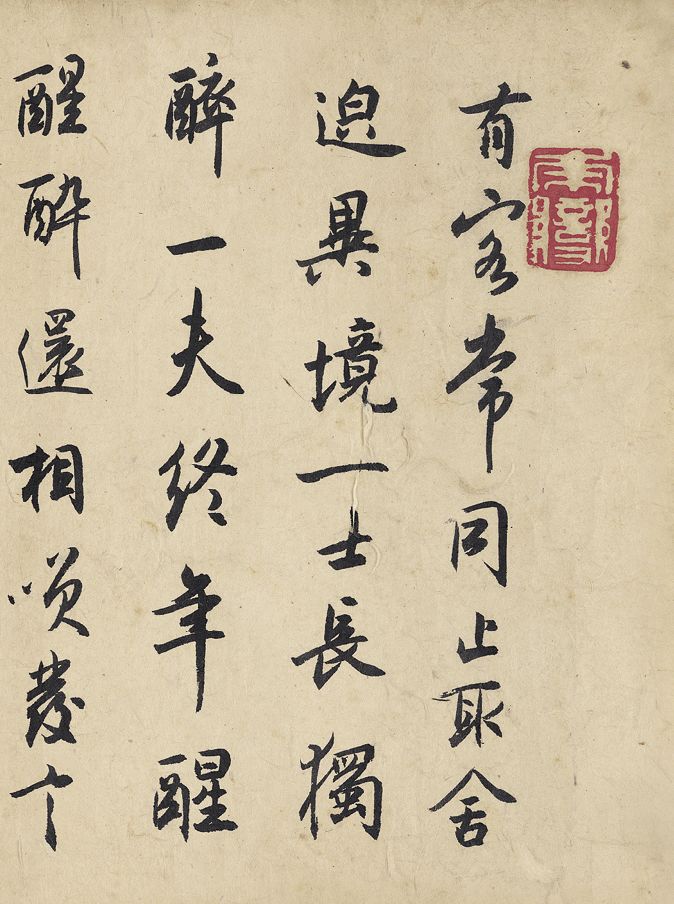 有客常同止取舍
異境一士長獨
醉一夫終年醒
醒酔還相咲發